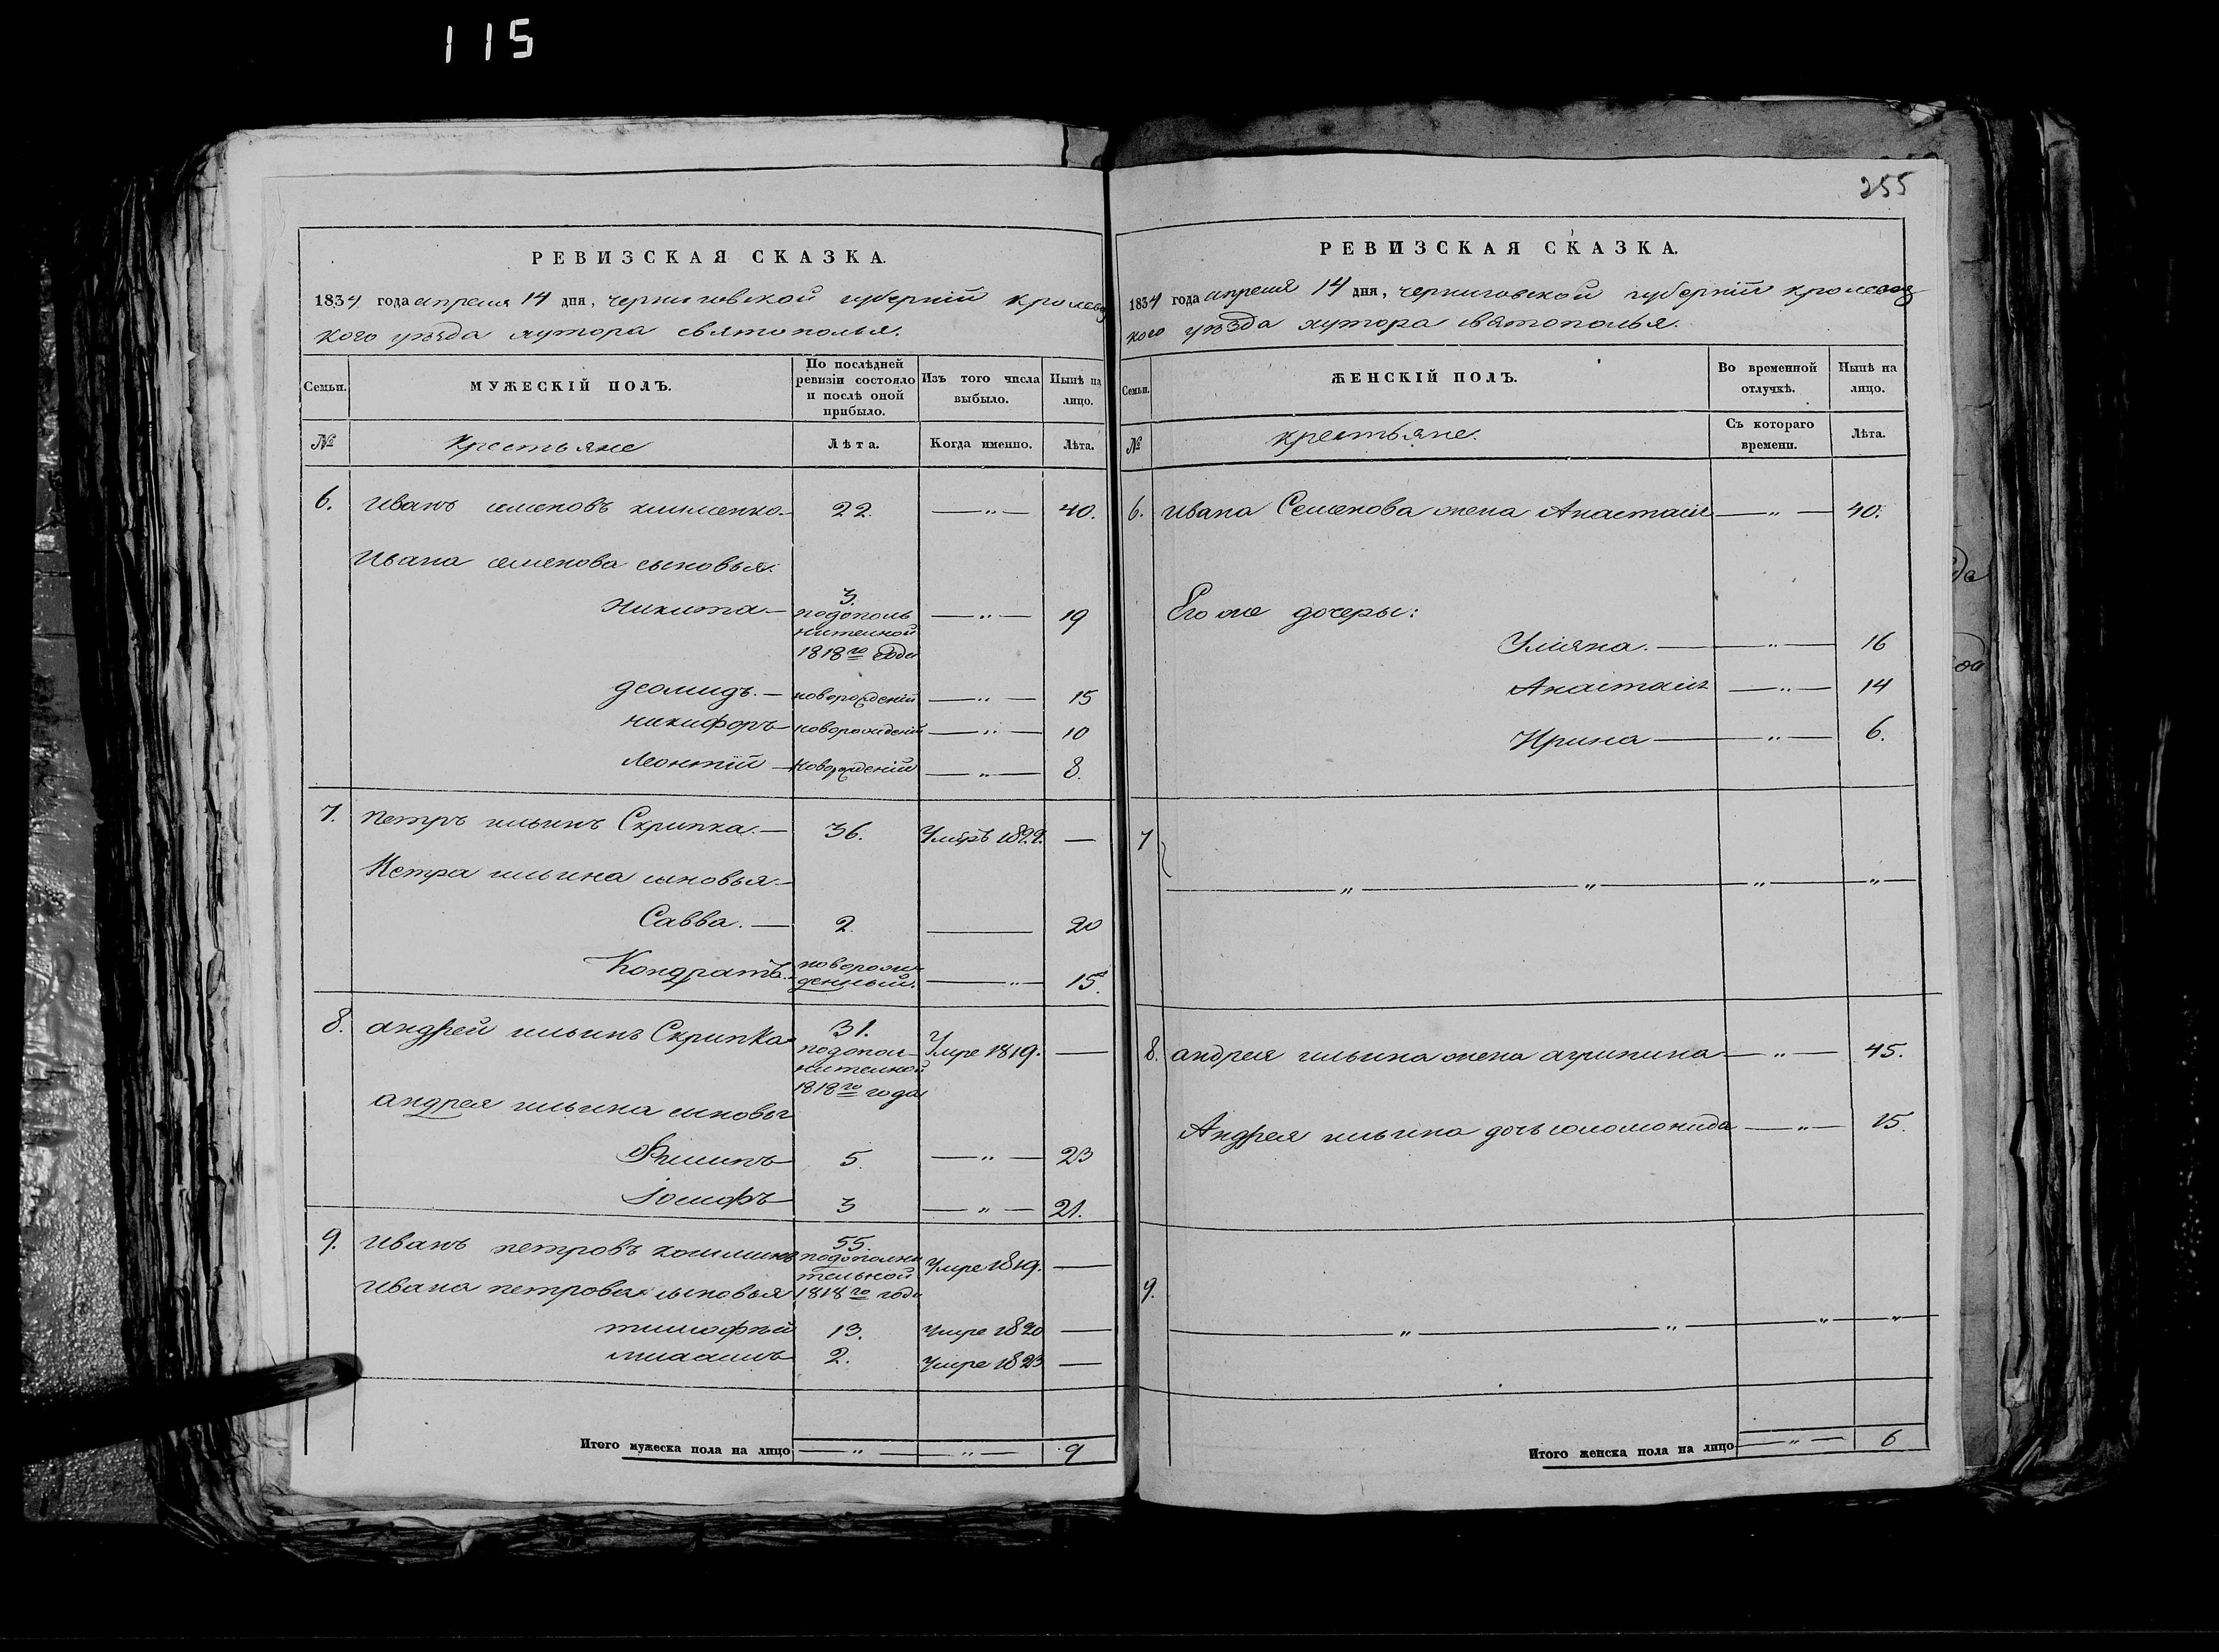 115
255
РЕВИЗСКАЯ СКАЗКА.
1834 года апреля 14 дня, черниговской губерніи кролевец
кого уѣзда хутора святополья.
Семьи. МУЖЕСКІЙ ПОЛЪ. По послѣдней ревизіи состояло и послѣ оной прибыло. Изъ того числа выбыло. Нынѣ на лицо.
№ крестьяне Лѣта. Когда именно. Лѣта.
6. Иванъ семеновъ клименко.— 22. —„— 40.
Ивана семенова сыновья:
никита.— 3. подополь нителной 1818го года —„— 19
деомидъ.— новорожденій —„— 15
никифоръ— новорожденій —„— 10
Леонтій— новорожденій —„— 8.
7. петръ ильинъ Скрипка.— 36. Умеръ 1822. —
Петра ильина сыновья—
Савва.— 2. — 20
Кондратъ.— новорож денный. —„— 15.
8. андрей ильинъ Скрипка 31. подопол— нителной 1818го года Умре 1819. —
андрея ильина сыновья
Филипъ— 5. —„— 23
Іосифъ— 3 —„— 21.
9. Иванъ петровъ 55. подополни тельной 1818го года Умре 1819. —
Ивана петрова сыновья
тимофѣй 13. Умре 1820 —
2. Умре 1823 —
Итого мужеска пола на лицо —„— —„— 9
РЕВИЗСКАЯ СКАЗКА.
1834 года апреля 14 дня, черниговской губерніи кролевец
кого уѣзда хутора святополья.
Семьи. ЖЕНСКІЙ ПОЛЪ. Во временной отлучкѣ. Нынѣ на лицо.
№ крестьяне. Съ котораго времени. Лѣта.
6. Ивана Семенова жена Анастасія —„— 40.
Его же дочеры:
Уліяна.— —„— 16
Анастасія —„— 14
Ирина— —„— 6.
7 — „ — „ — „ — „ —
8. андрея ильина жена агрипина —„— 45.
Андрея ильина дочь соломонида —„— 15.
9. — „ — „ — „ — „
Итого женска пола на лицо —„— 6